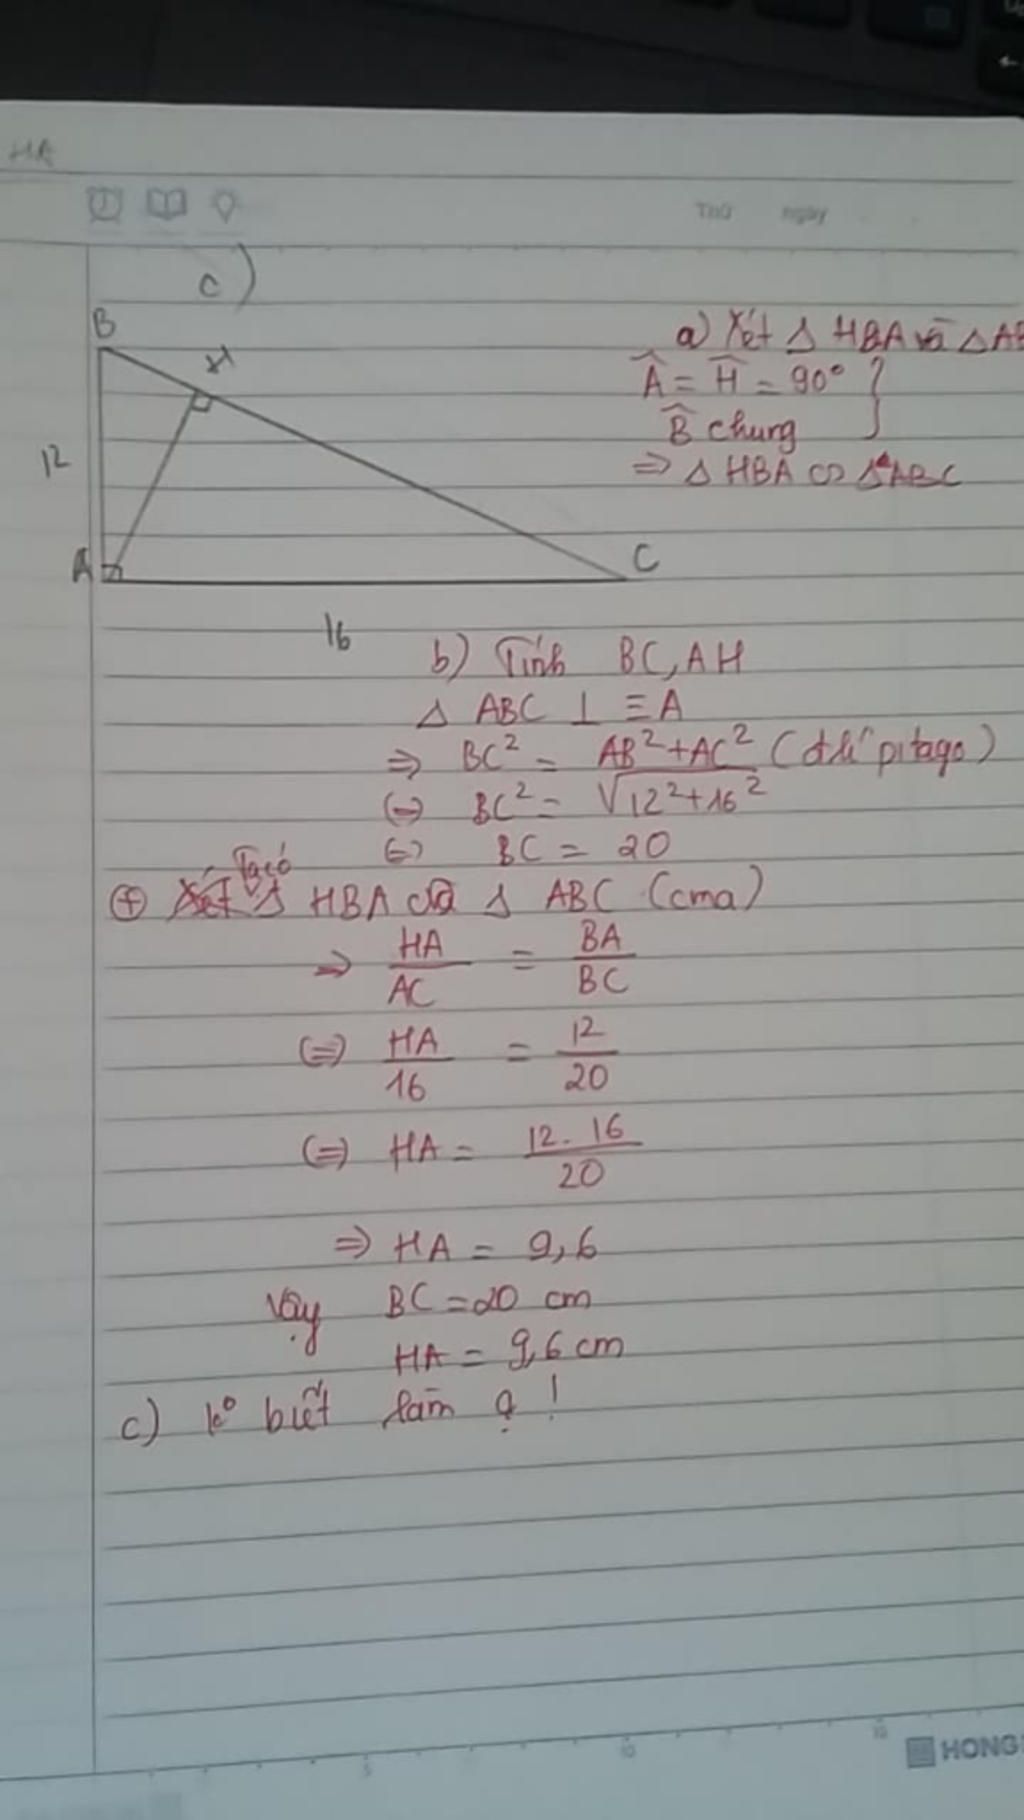 HA
Thứ ngày
c)
B
H
12
A
C
16
a) Xét Δ HBA và ΔAB
Â = Ĥ = 90° }
B̂ chung
⇒ Δ HBA ∽ Δ ABC
b) Tính BC, AH
Δ ABC ⊥ ≡ A
⇒ BC² = AB² + AC² (đlí pitago)
(=) BC² = √12² + 16²
(=) BC = 20
Ta có
⊕ Xét Δ HBA Δ ABC (cma)
⇒ HA/AC = BA/BC
(=) HA/16 = 12/20
(=) HA = 12.16/20
⇒ HA = 9,6
Vậy BC = 20 cm
HA = 9,6 cm
c) k° biết làm ạ !
5 10
HONG